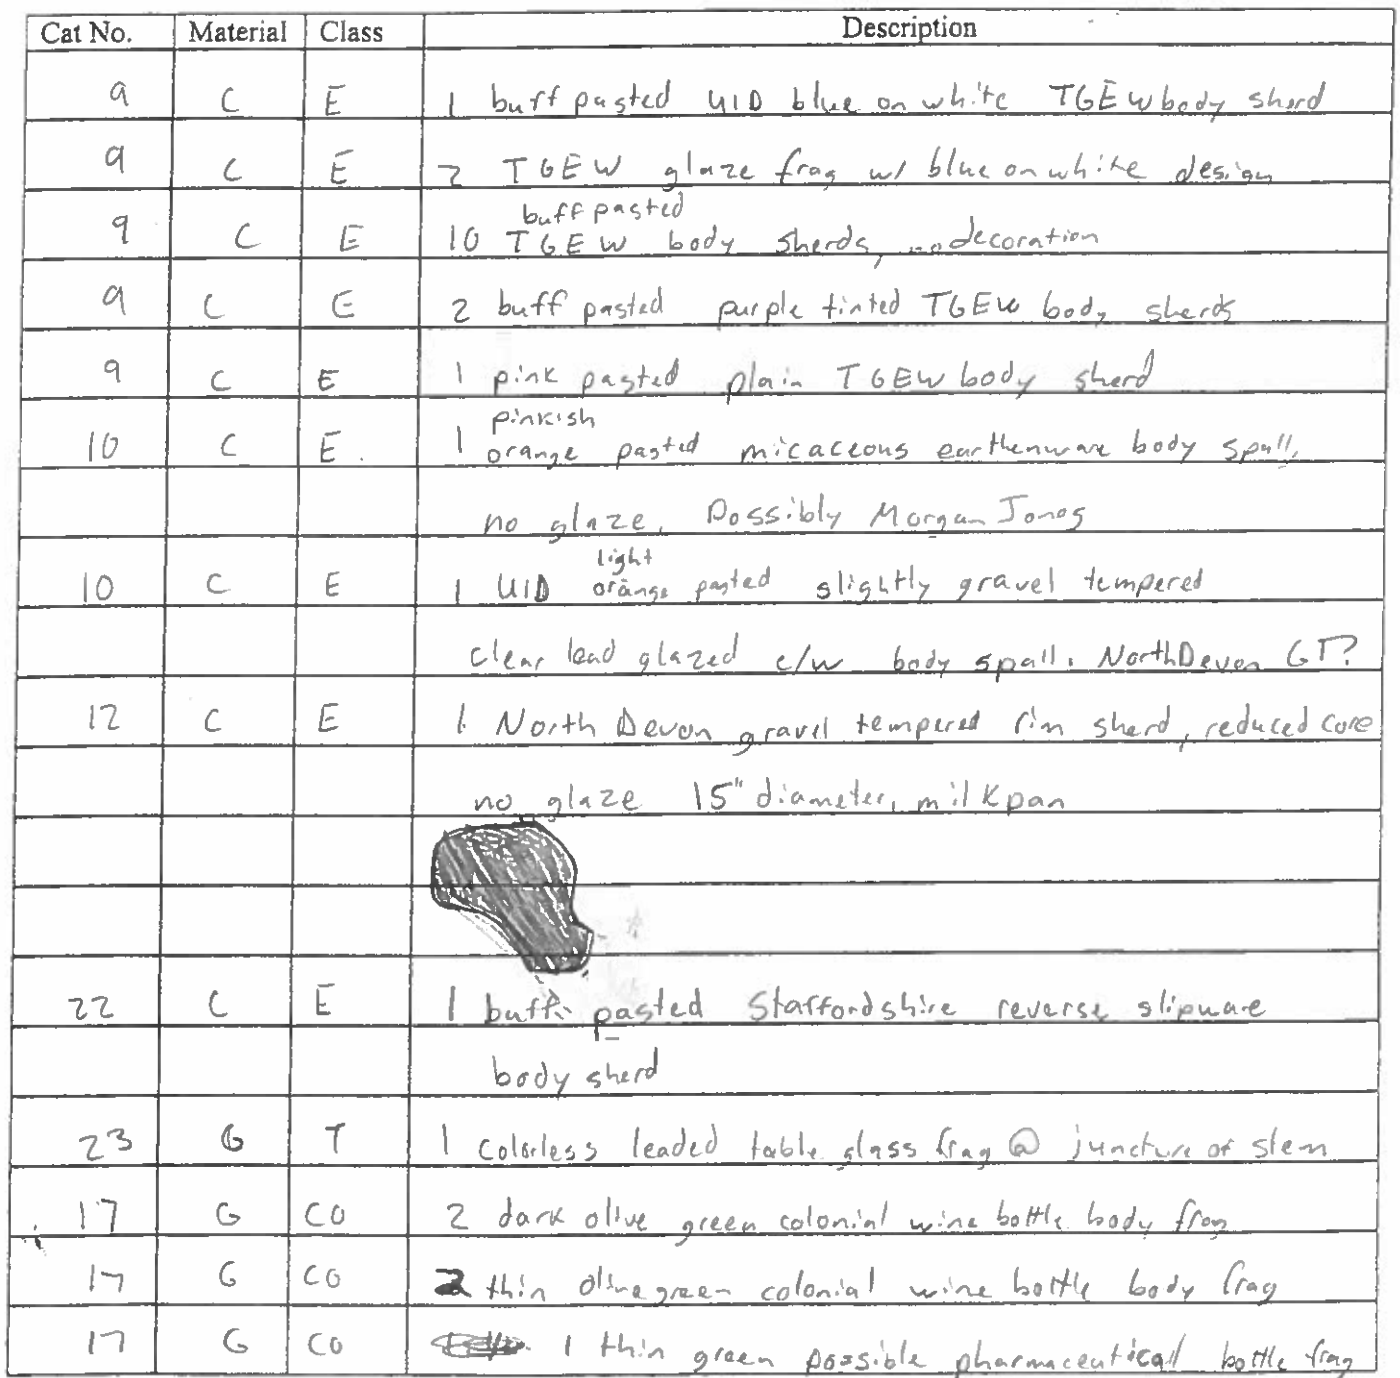 Cat No. Material Class Description
9 C E 1 buff pasted UID blue on white TGEW body sherd
9 C E 2 TGEW glaze frag w/ blue on white design
buff pasted
9 C E 10 TGEW body sherds, no decoration
9 C E 2 buff pasted purple tinted TGEW body sherds
9 C E 1 pink pasted plain TGEW body sherd
pinkish
10 C E 1 orange pasted micaceous earthenware body spall,
no glaze, Possibly Morgan Jones
light
10 C E 1 UID orange pasted slightly gravel tempered
clear lead glazed e/w body spall. North Devon GT?
12 C E 1 North Devon gravel tempered rim sherd, reduced core
no glaze 15" diameter, milkpan
22 C E 1 buff pasted Staffordshire reverse slipware
body sherd
23 G T 1 colorless leaded table glass frag @ juncture of stem
17 G CO 2 dark olive green colonial wine bottle body frag
17 G CO 2 thin olive green colonial wine bottle body frag
17 G CO 1 thin green possible pharmaceutical bottle frag